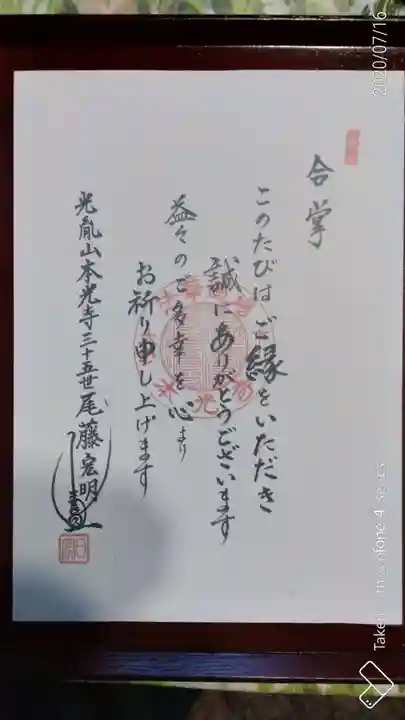 合掌
このたびはご縁をいただき
誠にありがとうございます
益々のご多幸を心より
お祈り申し上げます
光胤山本光寺三十五世尾藤宏明
2020/07/16